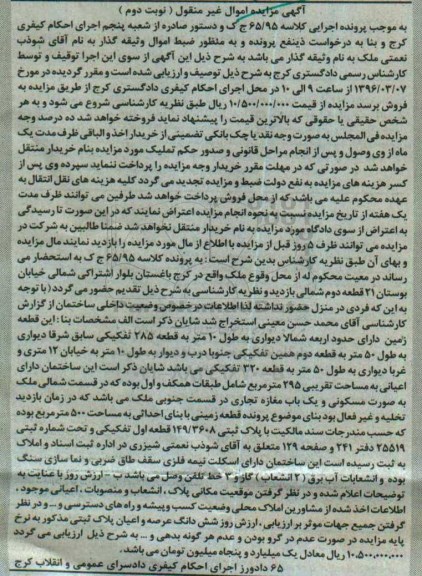 آگهی مزایده اموال غیر منقول ( نوبت دوم )
به موجب پرونده اجرایی کلاسه ۶۵/۹۵ ج ک و دستور صادره از شعبه پنجم اجرای احکام کیفری
کرج و بنا به درخواست ذینفع پرونده و به منظور ضبط اموال وثیقه گذار به نام آقای شوذب
نعمتی ملک به نام وثیقه گذار می باشد به شرح ذیل این آگهی از سوی این اجرا توقیف و توسط
کارشناس رسمی دادگستری کرج به شرح ذیل توصیف و ارزیابی شده است و مقرر گردیده در مورخ
۱۳۹۶/۰۳/۰۷ از ساعت ۹ الی ۱۰ در محل اجرای احکام کیفری دادگستری کرج از طریق مزایده به
فروش برسد مزایده از قیمت ۱۰/۵۰۰/۰۰۰/۰۰۰ ریال طبق نظریه کارشناسی شروع می شود و به هر
شخص حقیقی یا حقوقی که بالاترین قیمت را پیشنهاد نماید فروخته خواهد شد ده درصد وجه
مزایده فی المجلس به صورت وجه نقد یا چک بانکی تضمینی از خریدار اخذ و الباقی ظرف مدت یک
ماه از وی وصول و پس از انجام مراحل قانونی و صدور حکم تملیک مورد مزایده بنام خریدار منتقل
خواهد شد در صورتی که در مهلت مقرر خریدار وجه مزایده را پرداخت ننماید سپرده وی پس از
کسر هزینه های مزایده به نفع دولت ضبط و مزایده تجدید می گردد کلیه هزینه های نقل انتقال به
عهده محکوم علیه می باشد که از محل فروش پرداخت خواهد شد طرفین می توانند ظرف مدت
یک هفته از تاریخ مزایده نسبت به نحوه انجام مزایده اعتراض نمایند که در این صورت تا رسیدگی
به اعتراض از سوی دادگاه مورد مزایده به نام خریدار منتقل نخواهد شد ضمنا طالبین به شرکت در
مزایده می توانند ظرف ۵ روز قبل از مزایده با اطلاع از مال مورد مزایده را بازدید نمایند مال مزایده
و بهای آن طبق نظریه کارشناس بدین شرح است : به پرونده کلاسه ۶۵/۹۵ ج ک به استحضار می
رساند در معیت محکوم له از محل وقوع ملک واقع در کرج باغستان بلوار اشتراکی شمالی خیابان
بوستان ۲۱ قطعه دوم شمالی بازدید و نظریه کارشناسی به شرح ذیل تقدیم حضور می گردد ( با توجه
به این که فردی در منزل حضور نداشته لذا اطلاعات در خصوص وضعیت داخلی ساختمان از گزارش
کارشناسی آقای محمد حسن معینی استخراج شد شایان ذکر است الف مشخصات بنا : این قطعه
زمین دارای حدود اربعه شمالا دیواری به طول ۱۰ متر به قطعه ۲۸۵ تفکیکی سابق شرقا دیواری
به طول ۵۰ متر به قطعه دوم همین تفکیکی جنوبا درب و دیوار به طول ۱۰ متر به خیابان ۱۲ متری و
غربا دیواری به طول ۵۰ متر به قطعه ۳۲۰ تفکیکی می باشد شایان ذکر است این ساختمان دارای
اعیانی به مساحت تقریبی ۲۹۵ مترمربع شامل طبقات همکف و اول بوده که در قسمت شمالی ملک
به صورت مسکونی و یک باب مغازه تجاری در قسمت جنوبی ملک می باشد که در زمان بازدید
تخلیه و غیر فعال بود بنای موضوع پرونده قطعه زمینی با بنای احداثی به مساحت ۵۰۰ مترمربع بوده
که حسب مندرجات سند مالکیت با پلاک ثبتی ۱۴۹/۳۶۰۸ قطعه اول تفکیکی و تحت شماره ثبتی
۲۵۵۱۹ دفتر ۲۴۱ و صفحه ۱۲۹ متعلق به آقای شوذب نعمتی شیزری در اداره ثبت اسناد و املاک
به ثبت رسیده است این ساختمان دارای اسکلت نیمه فلزی سقف طاق ضربی و نما سازی سنگ
بوده و انشعابات آب برق ( ۲ انشعاب ) گاز و ۳ خط تلفن وصل می باشد ب - ارزش روز با عنایت به
توضیحات اعلام شده و در نظر گرفتن موقعیت مکانی پلاک ، انشعاب و منصوبات ، اعیانی موجود ،
اطلاعات اخذ شده از مشاورین املاک محلی وضعیت کسب و پیشه و راه های دسترسی و ... و در نظر
گرفتن جمیع جهات موثر بر ارزیابی ، ارزش روز شش دانگ عرصه و اعیان پلاک ثبتی مذکور به نرخ
پایه مزایده در صورت عدم در گرو بودن و عدم هر گونه بدهی و ... به شرح ذیل ارزیابی می گردد
۱۰.۵۰۰.۰۰۰.۰۰۰ ریال معادل یک میلیارد و پنجاه میلیون تومان می باشد.
۶۵ دادورز اجرای احکام کیفری دادسرای عمومی و انقلاب کرج